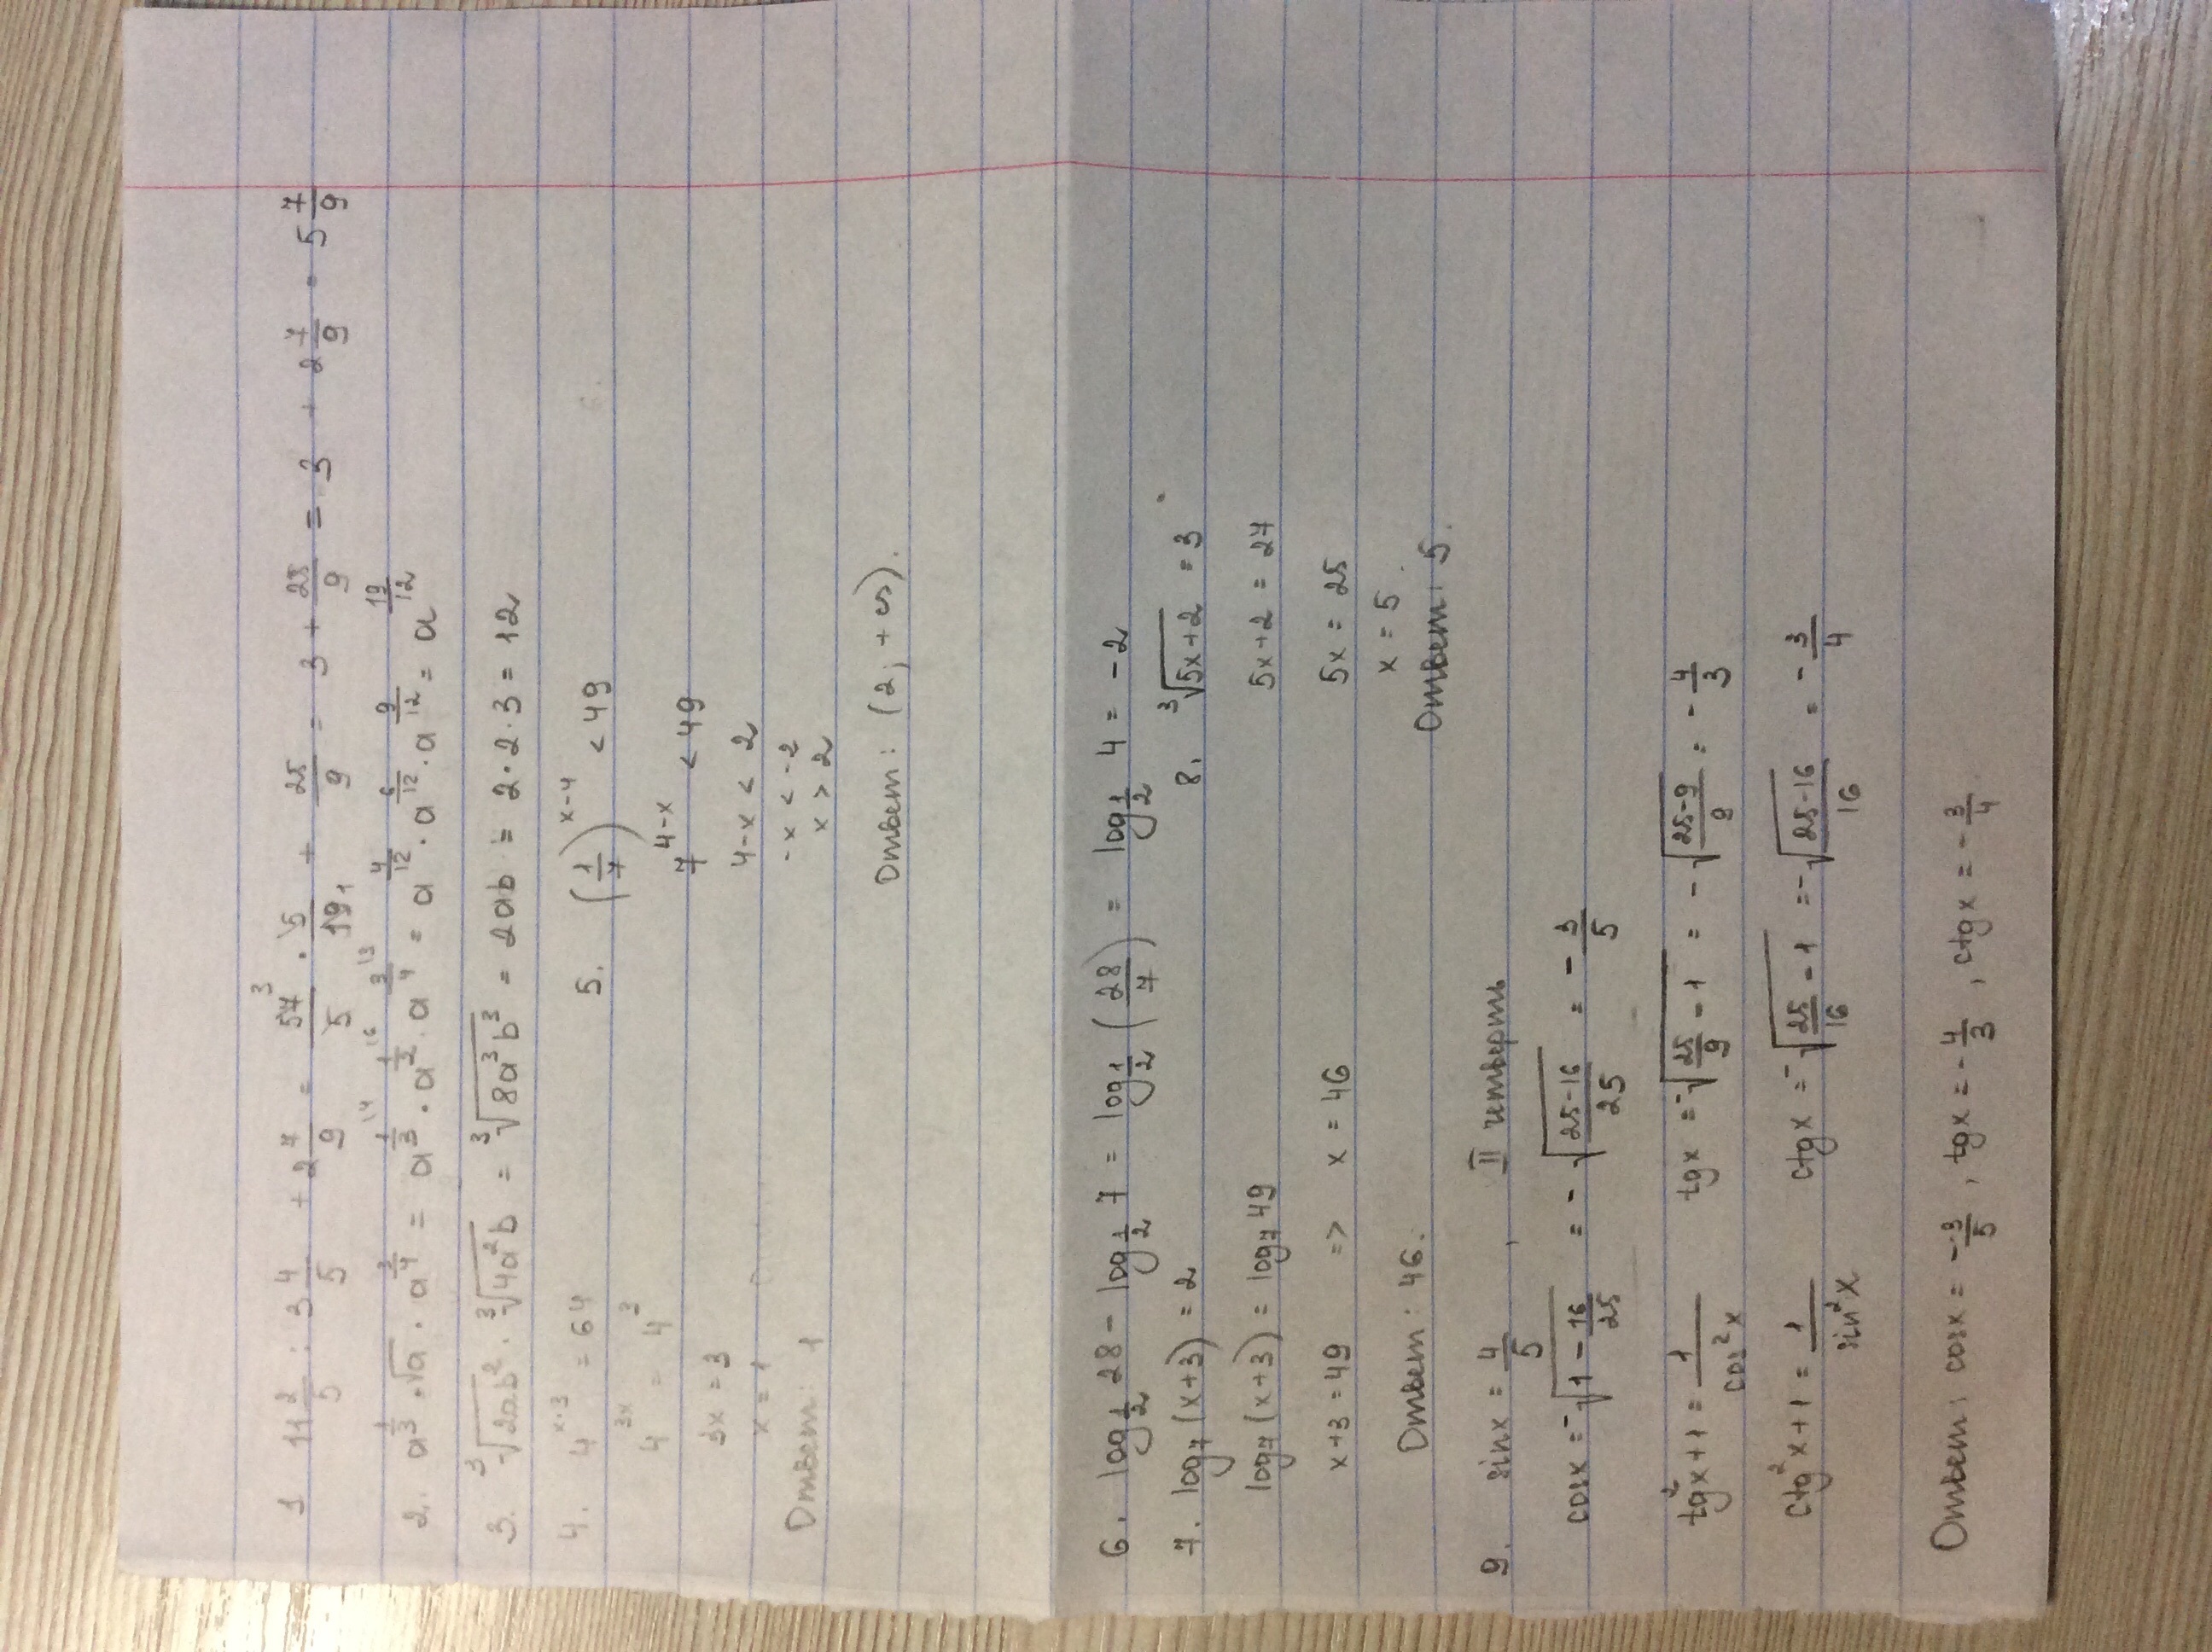 1 11 2/5 : 3 4/5 + 2 7/9 = 57/5 · 5/19 + 25/9 = 3 + 25/9 = 3 + 2 7/9 = 5 7/9
2. a^(1/3) · √a · a^(3/4) = a^(1/3) · a^(1/2) · a^(3/4) = a^(4/12) · a^(6/12) · a^(9/12) = a^(19/12)
3. ∛(2ab²) · ∛(4a²b) = ∛(8a³b³) = 2ab = 2·2·3 = 12
4. 4^(x·3) = 64
4^(3x) = 4³
3x = 3
x = 1
Ответ: 1
5. (1/7)^(x-4) < 49
7^(4-x) < 49
4-x < 2
-x < -2
x > 2
Ответ: (2; +∞).
6. log_(1/2) 28 - log_(1/2) 7 = log_(1/2) (28/7) = log_(1/2) 4 = -2
7. log₇(x+3) = 2
log₇(x+3) = log₇49
x+3 = 49 => x = 46
Ответ: 46.
8. ∛(5x+2) = 3
5x+2 = 27
5x = 25
x = 5
Ответ: 5.
9. sinx = 4/5, II четверть
cosx = -√(1 - 16/25) = -√((25-16)/25) = -3/5
tg²x + 1 = 1/cos²x tgx = -√(25/9 - 1) = -√((25-9)/9) = -4/3
ctg²x + 1 = 1/sin²x ctgx = -√(25/16 - 1) = -√((25-16)/16) = -3/4
Ответ: cosx = -3/5, tgx = -4/3, ctgx = -3/4.